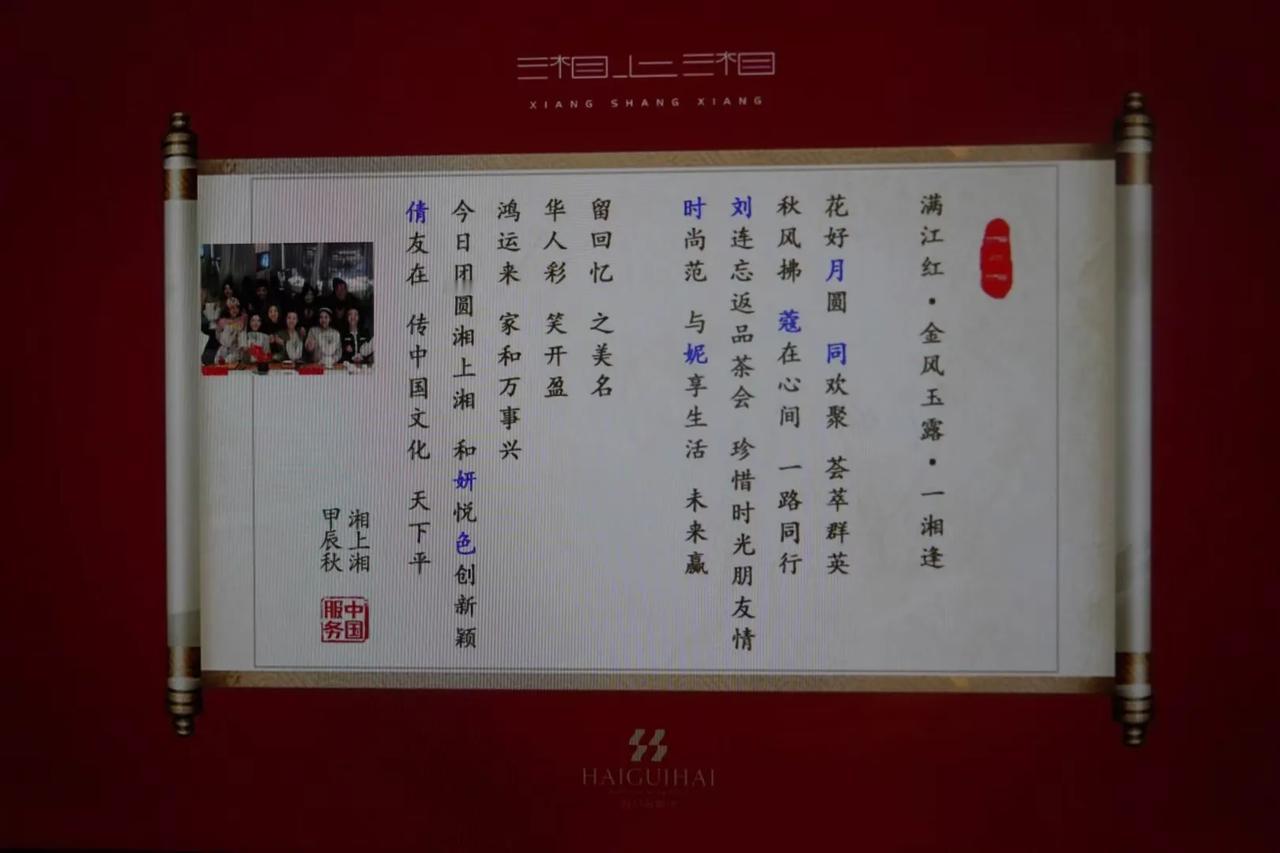 湘上湘
XIANG SHANG XIANG
满江红·金风玉露·一湘逢
花好月圆 同欢聚 荟萃群英
秋风拂 蔻在心间 一路同行
刘连忘返品茶会 珍惜时光朋友情
时尚范 与妮享生活 未来赢
留回忆 之美名
华人彩 笑开盈
鸿运来 家和万事兴
今日团圆湘上湘 和妍悦色创新颖
倩友在 传中国文化 天下平
湘上湘
甲辰秋
中国
服务
HAIGUIHAI